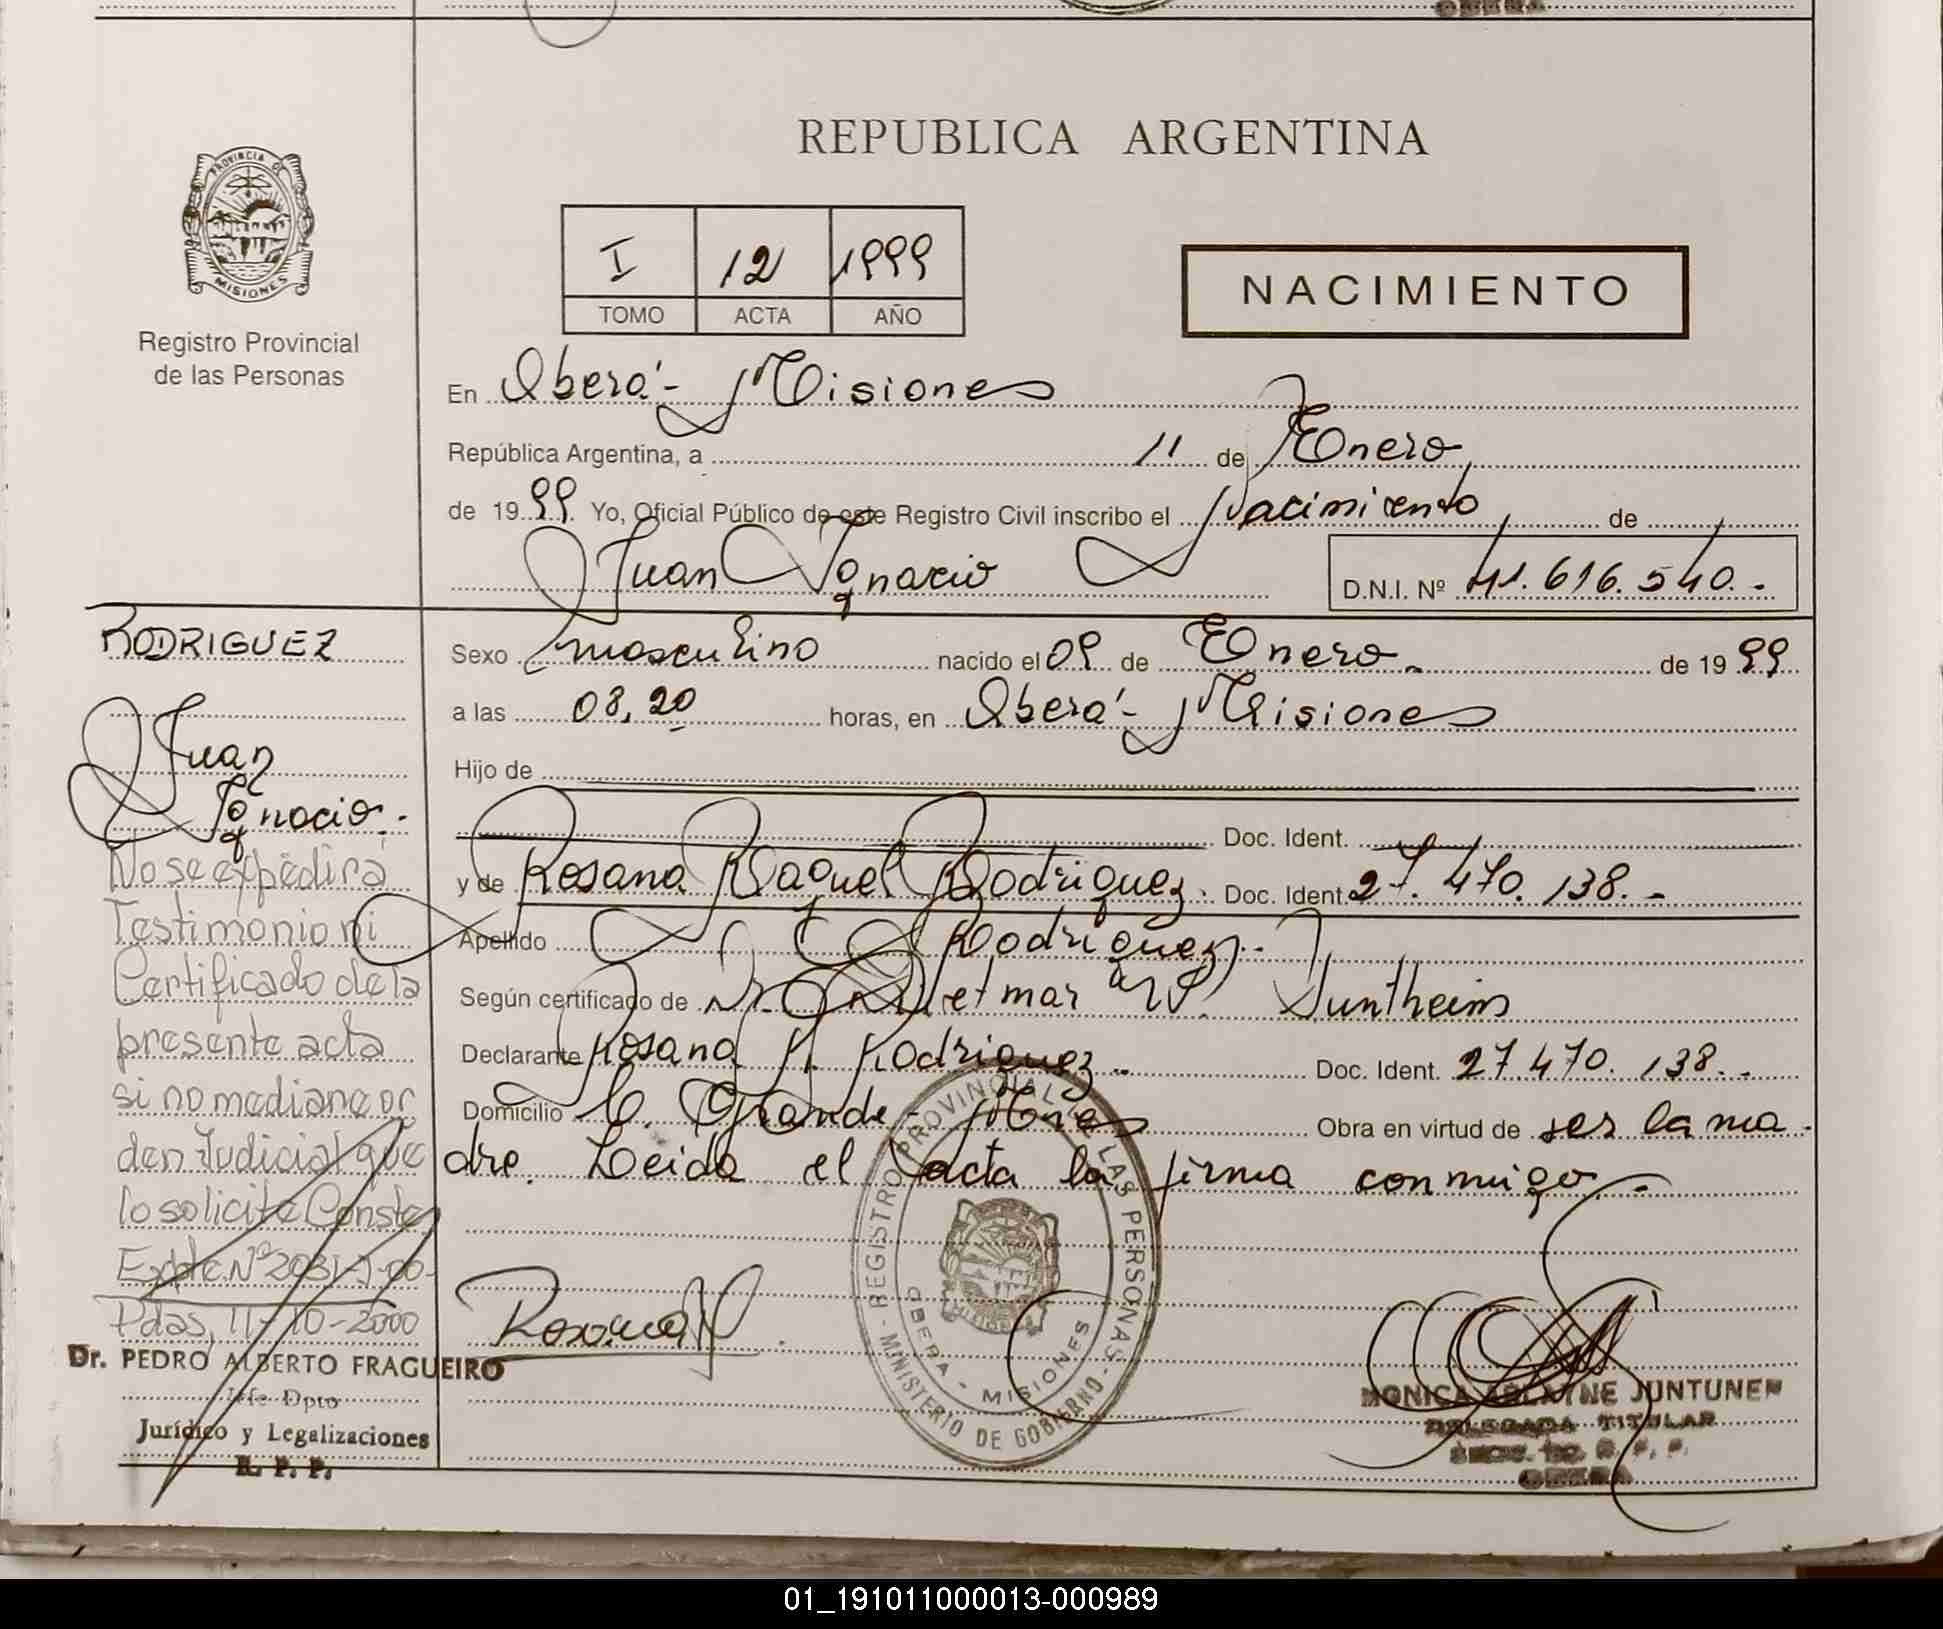 REPUBLICA ARGENTINA
PROVINCIA DE
MISIONES
Registro Provincial
de las Personas
I 12 1999
TOMO ACTA AÑO
NACIMIENTO
En Oberá - Misiones
República Argentina, a 11 de Enero
de 1999 Yo, Oficial Público de este Registro Civil inscribo el Nacimiento de
Juan Ignacio D.N.I. Nº 41.616.540.-
RODRIGUEZ
Juan
Ignacio.-
Sexo masculino nacido el 09 de Enero.- de 1999
a las 08,20 horas, en Oberá - Misiones
Hijo de
Doc. Ident.
y de Rosana Raquel Rodriguez. Doc. Ident. 27.470.138.-
Apellido Rodriguez.-
Según certificado de Dr. Dietmar W. Suntheim
Declarante Rosana R. Rodriguez.- Doc. Ident. 27.470.138.-
Domicilio C. Grande - Mnes Obra en virtud de ser la ma-
dre. Leida el acta la firma conmigo.-
No se expedirá
Testimonio ni
Certificado de la
presente acta
si no mediane or
den Judicial que
lo solicite Conste,
Expte. Nº 2031-J-00-
Pdas, 11-10-2000
Dr. PEDRO ALBERTO FRAGUEIRO
Jefe Dpto
Jurídico y Legalizaciones
R. P. P.
REGISTRO PROVINCIAL DE LAS PERSONAS - MINISTERIO DE GOBIERNO -
OBERA - MISIONES
MONICA JUNTUNEN
DELEGADA TITULAR
OBERA
01_191011000013-000989